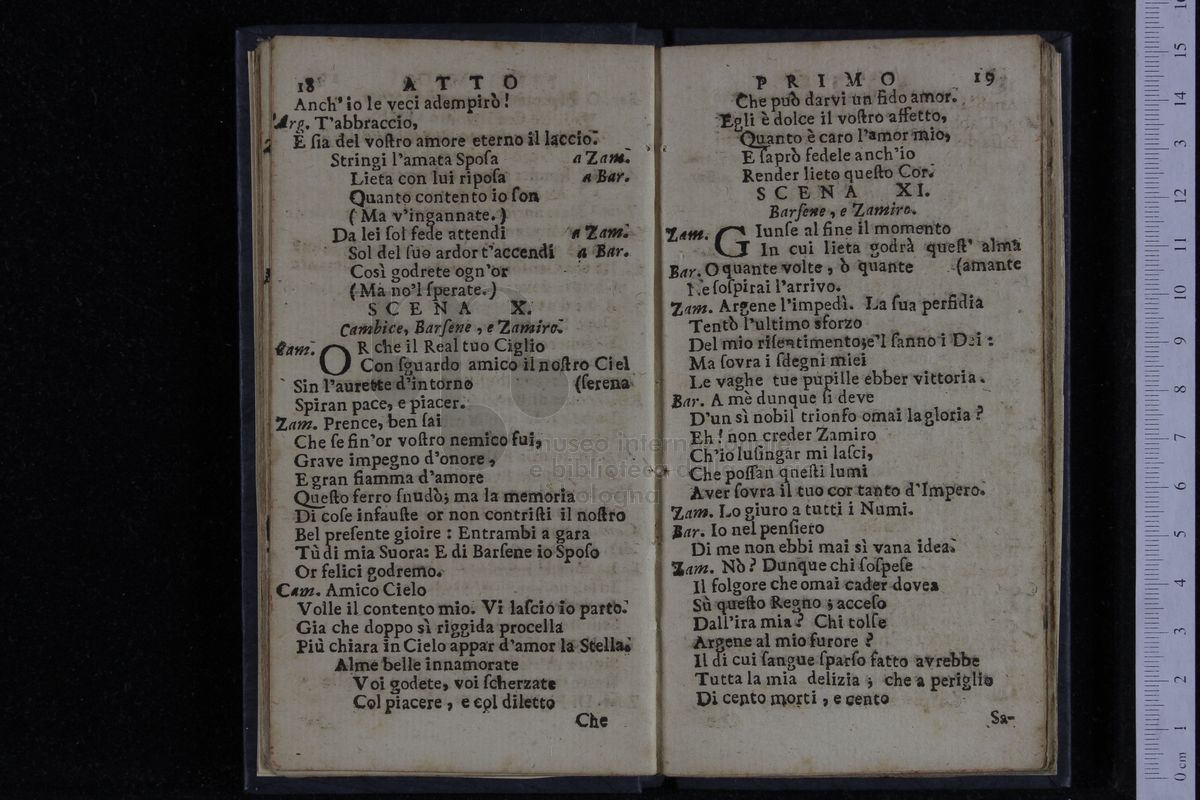 18 ATTO
Anch' io le veci adempirò!
Arg. T'abbraccio,
E ſia del voſtro amore eterno il laccio.
Stringi l'amata Spoſa a Zam.
Lieta con lui ripoſa a Bar.
Quanto contento io ſon
( Ma v'ingannate. )
Da lei ſol fede attendi a Zam.
Sol del ſuo ardor t'accendi a Bar.
Così godrete ogn'or
( Ma no'l ſperate. )
SCENA X.
Cambice, Barſene, e Zamiro.
Cam. OR che il Real tuo Ciglio
Con ſguardo amico il noſtro Ciel
Sin l'aurette d'intorno (ſerena
Spiran pace, e piacer.
Zam. Prence, ben ſai
Che ſe fin'or voſtro nemico fui,
Grave impegno d'onore,
E gran fiamma d'amore
Queſto ferro ſnudò; ma la memoria
Di coſe infauſte or non contriſti il noſtro
Bel preſente gioire : Entrambi a gara
Tù di mia Suora: E di Barſene io Spoſo
Or felici godremo.
Cam. Amico Cielo
Volle il contento mio. Vi laſcio io parto.
Gia che doppo sì riggida procella
Più chiara in Cielo appar d'amor la Stella.
Alme belle innamorate
Voi godete, voi ſcherzate
Col piacere, e col diletto
Che
PRIMO 19
Che può darvi un fido amor.
Egli è dolce il voſtro affetto,
Quanto è caro l'amor mio,
E ſaprò fedele anch'io
Render lieto queſto Cor.
SCENA XI.
Barſene, e Zamiro.
Zam. GIunſe al fine il momento
In cui lieta godrà queſt' alma
Bar. O quante volte, ò quante (amante
Ne ſoſpirai l'arrivo.
Zam. Argene l'impedì. La ſua perfidia
Tentò l'ultimo sforzo
Del mio riſentimento;e'l ſanno i Dei :
Ma ſovra i ſdegni miei
Le vaghe tue pupille ebber vittoria.
Bar. A mè dunque ſi deve
D'un sì nobil trionfo omai la gloria ?
Eh ! non creder Zamiro
Ch'io luſingar mi laſci,
Che poſſan queſti lumi
Aver ſovra il tuo cor tanto d'Impero.
Zam. Lo giuro a tutti i Numi.
Bar. Io nel penſiero
Di me non ebbi mai sì vana idea.
Zam. Nò ? Dunque chi ſoſpeſe
Il folgore che omai cader dovea
Sù queſto Regno ; acceſo
Dall'ira mia ? Chi tolſe
Argene al mio furore ?
Il di cui ſangue ſparſo fatto avrebbe
Tutta la mia delizia ; che a periglio
Di cento morti, e cento
Sa-